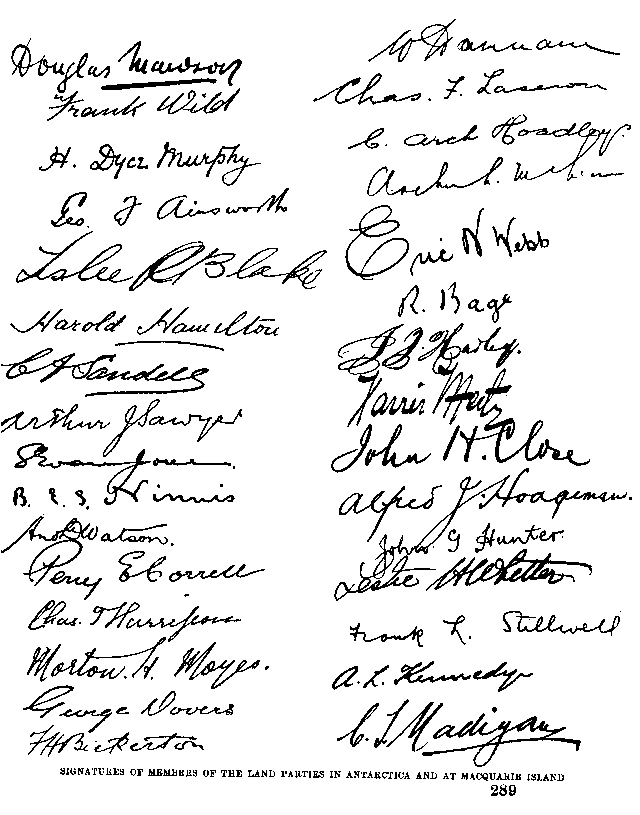 Douglas Mawson
Frank Wild
H. Dyce Murphy
Geo. F Ainsworth
Leslie R Blake
Harold Hamilton
C A Sandell
Arthur J Sawyer
S Evan Jones
B. E. S. Ninnis
And. Watson.
Percy E Correll
Chas. T Harrisson
Morton. H. Moyes.
George Dovers
F H Bickerton
W Hannam
Chas. F. Laseron
C. Arch Hoadley.
Archie L. McLean
Eric N Webb
R. Bage
J. F. Hurley.
Xavier Mertz
John H. Close
Alfred J. Hodgeman.
John G Hunter
Leslie H Whetter
Frank L. Stillwell
A. L. Kennedy
C. T. Madigan
SIGNATURES OF MEMBERS OF THE LAND PARTIES IN ANTARCTICA AND AT MACQUARIE ISLAND
289